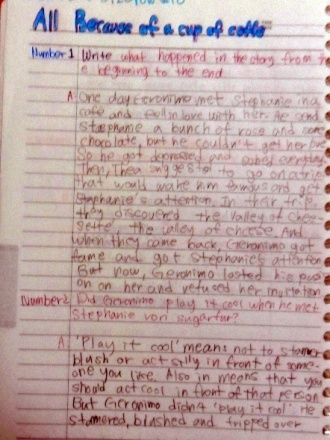 All Because of a cup of coffe
Number 1 Write what happened in the story from th
e beginning to the end
A. One day Geronimo met Stephanie in a
café and fell in love with her. He send
Stephanie a bunch of rose and some
chocolate, but he couldn't get her love
So he got depressed and sobed everyday
Then, Thea suggested to go on a trip
that would make him famous and get
Stephanie's attention. In their trip
they discovered the Valley of Chee-
sette, the valley of cheese. And
when they came back, Geronimo got
fame and got Stephanie's attention
But now, Geronimo losted his passi
on on her and refused her invitation
Number 2 Did Geronimo play it cool when he met
Stephanie von Sugarfur?
A. 'Play it cool' means not to stamer
blush or act silly in front of some-
one you like. Also in means that you
should act cool in front of that person
But Geronimo didn't 'play it cool'. He
stamered, blushed and tripped over